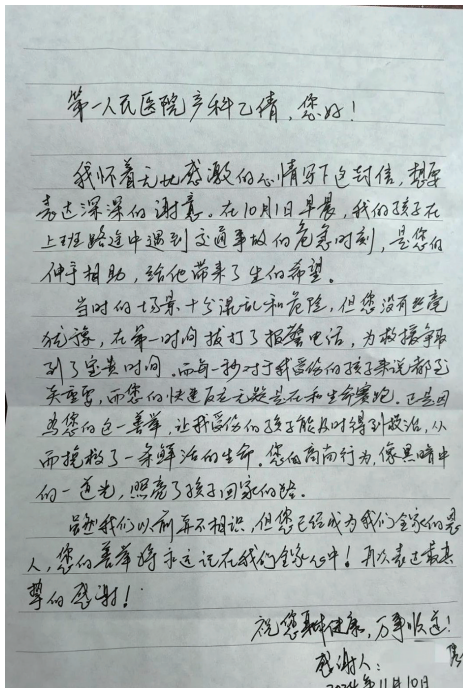 第一人民医院产科乙倩，您好！
我怀着无比感激的心情写下这封信，想要
表达深深的谢意。在10月1日早晨，我的孩子在
上班路途中遇到交通事故的危急时刻，是您的
伸手相助，给他带来了生的希望。
当时的场景十分混乱和危险，但您没有丝毫
犹豫，在第一时间拨打了报警电话，为救援争取
到了宝贵时间。而每一秒对于我受伤的孩子来说都至
关重要，而您的快速反应无疑是在和生命赛跑。正是因
为您的这一善举，让我受伤的孩子能及时得到救治，从
而挽救了一条鲜活的生命。您的高尚行为，像黑暗中
的一道光，照亮了孩子回家的路。
虽然我们以前并不相识，但您已经成为我们全家的恩
人，您的善举将永远记在我们全家心中！再次表达最真
挚的感谢！
祝您身体健康，万事顺遂！
感谢人：
2024年11月10日